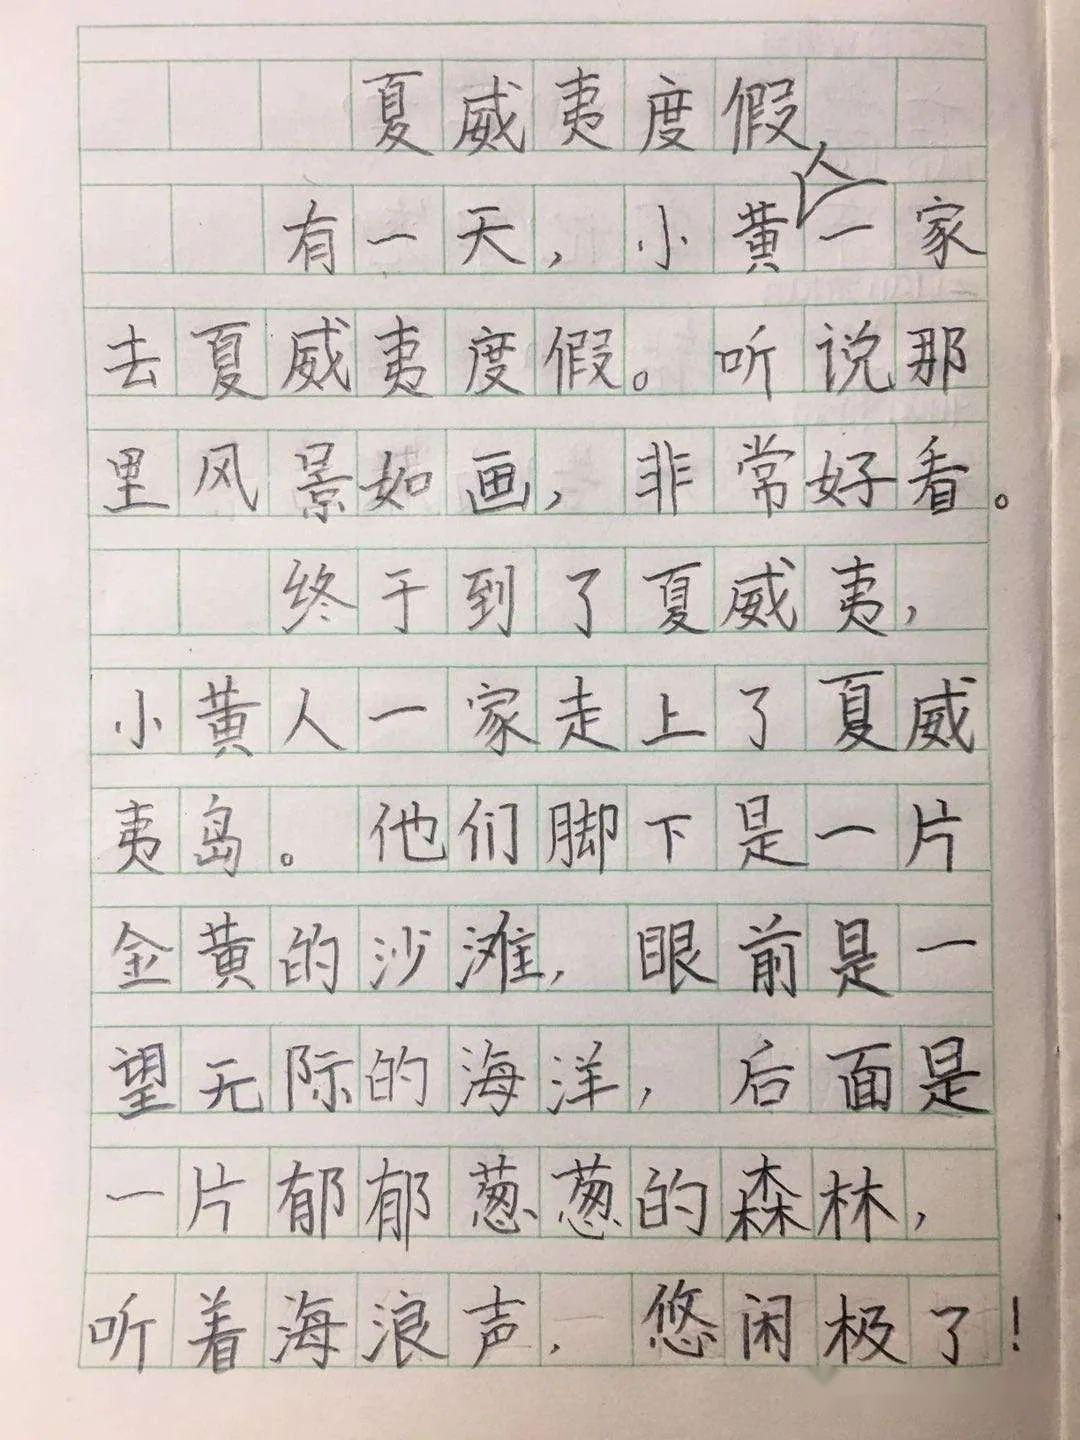 夏威夷度假
有一天，小黄人一家
去夏威夷度假。听说那
里风景如画，非常好看。
终于到了夏威夷，
小黄人一家走上了夏威
夷岛。他们脚下是一片
金黄的沙滩，眼前是一
望无际的海洋，后面是
一片郁郁葱葱的森林，
听着海浪声，悠闲极了！